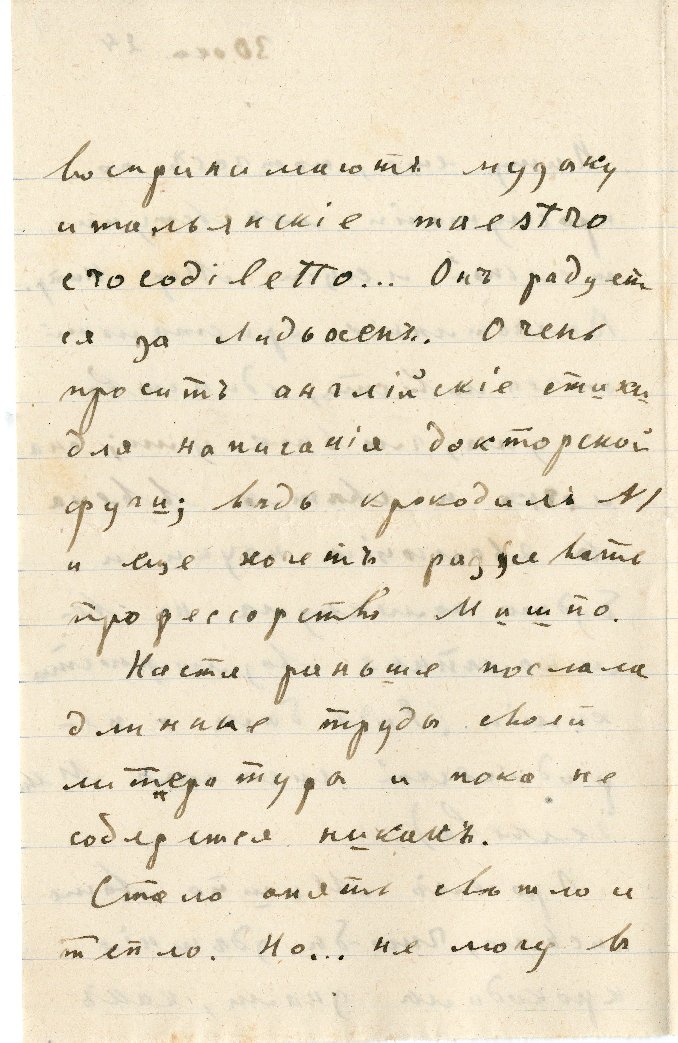 воспринимаютъ музыку
итальянскіе maestro
crocodiletto... Онъ радует
ся за Лидъхенъ. Очень
проситъ англійскіе стихи
для написанія докторской
фуги; вѣдь крокодилъ №1
и еще хочетъ
профессорство
Настя раньше послала
длинные труды своей
литературы и пока не
соберется никакъ.
Стало опять свѣтло и
тепло. Но... не могу в